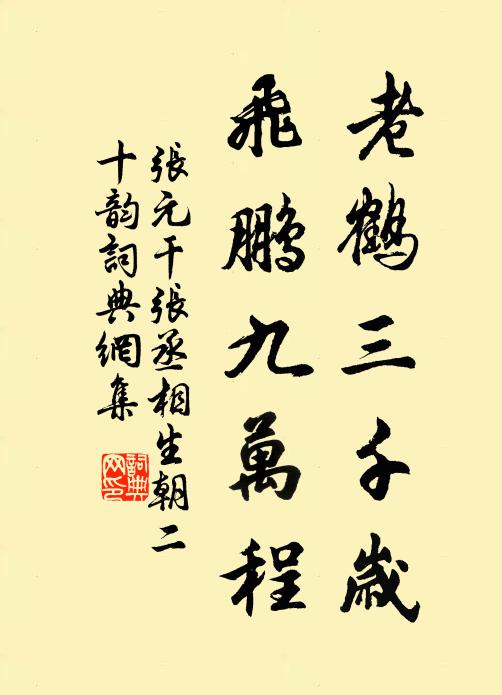 老鶴三千歲
飛鵬九萬程
張元干張丞相生朝二
十韵詞典網集
詞典
网印